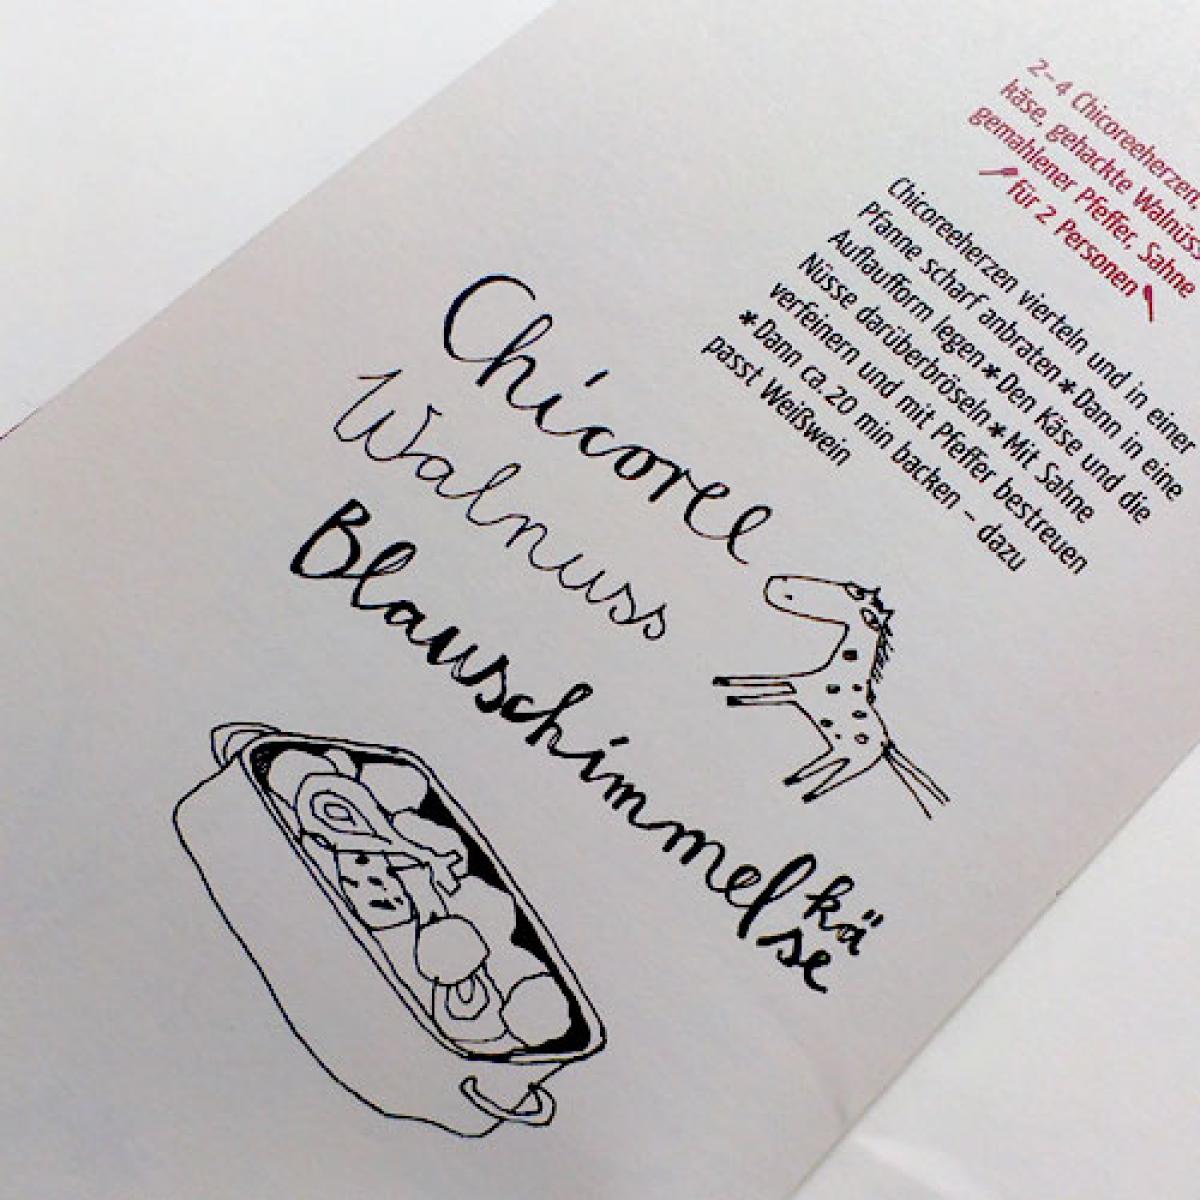 2–4 Chicoreeherzen,
käse, gehackte Walnüss
gemahlener Pfeffer, Sahne
für 2 Personen
Chicoreeherzen vierteln und in einer
Pfanne scharf anbraten * Dann in eine
Auflaufform legen * Den Käse und die
Nüsse darüberbröseln * Mit Sahne
verfeinern und mit Pfeffer bestreuen
* Dann ca. 20 min backen – dazu
passt Weißwein
Chicoree
Walnuss
Blauschimmel
kä
se